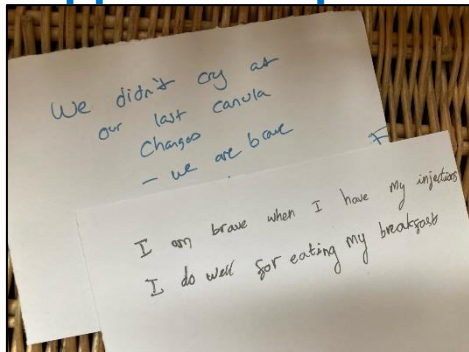 We didn't cry at
our last canula
Changes
- we are brave
F
I am brave when I have my injections
I do well for eating my breakfast